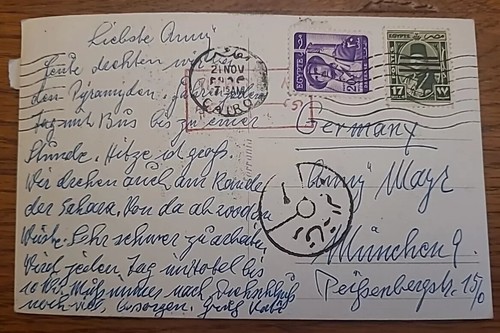 Liebste Anny
Heute drehten wir bei
den Pyramyden,
Tag mit Bus bis zu einer
Stunde. Hitze ist groß.
Wir drehen auch am Rande
der Sahara. Von da ab 2000 km
Wüste. Sehr schwer zu arbeiten
Wird jeden Tag im Hotel bis
10 Uhr. Muß immer nach Drehschluß
noch viel besorgen. Gruß
EGYPT
21 NOV
CAIRO
EGYPT
17 ١٧
Germany
Anny Mayr
München 9.
Peißenbergstr. 15/0